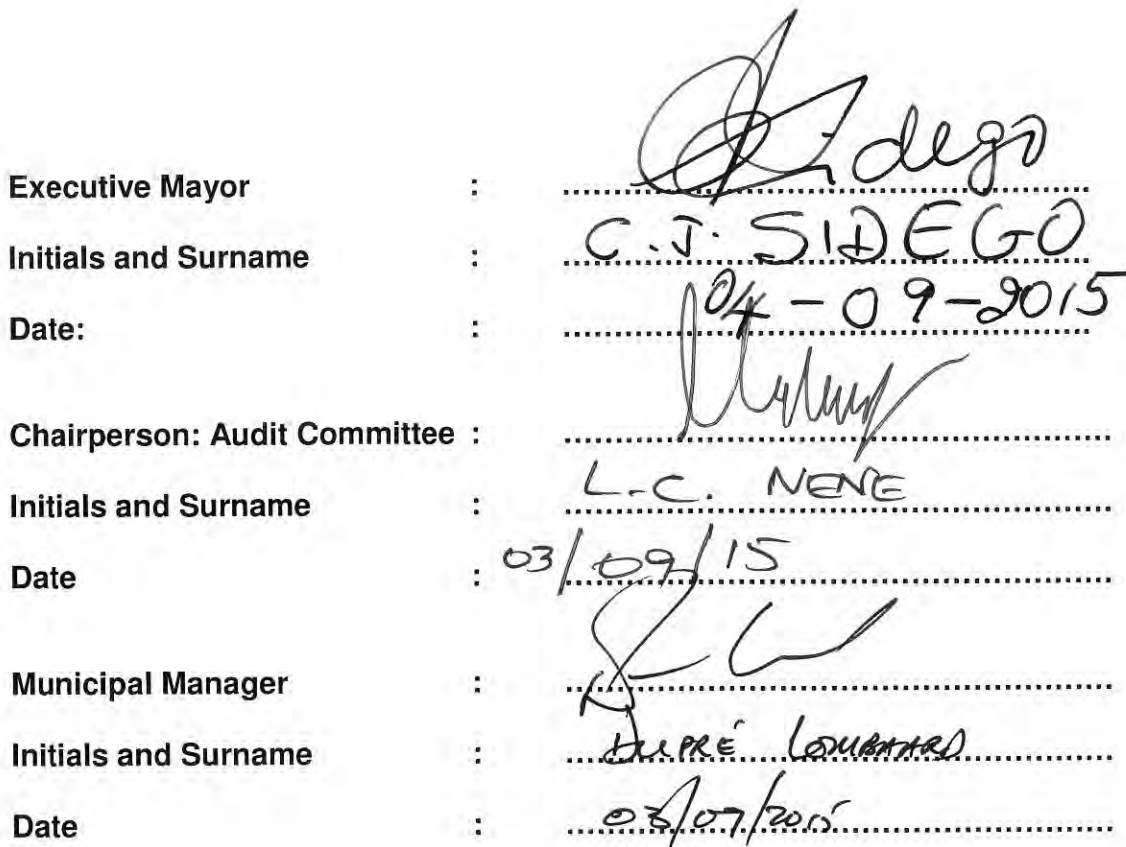 Executive Mayor : Sidego
Initials and Surname : C.J. SIDEGO
Date: : 04-09-2015
Chairperson: Audit Committee :
Initials and Surname : L.C. NENE
Date : 03/09/15
Municipal Manager :
Initials and Surname : DUPRÉ LOMBAARD
Date : 03/07/2015